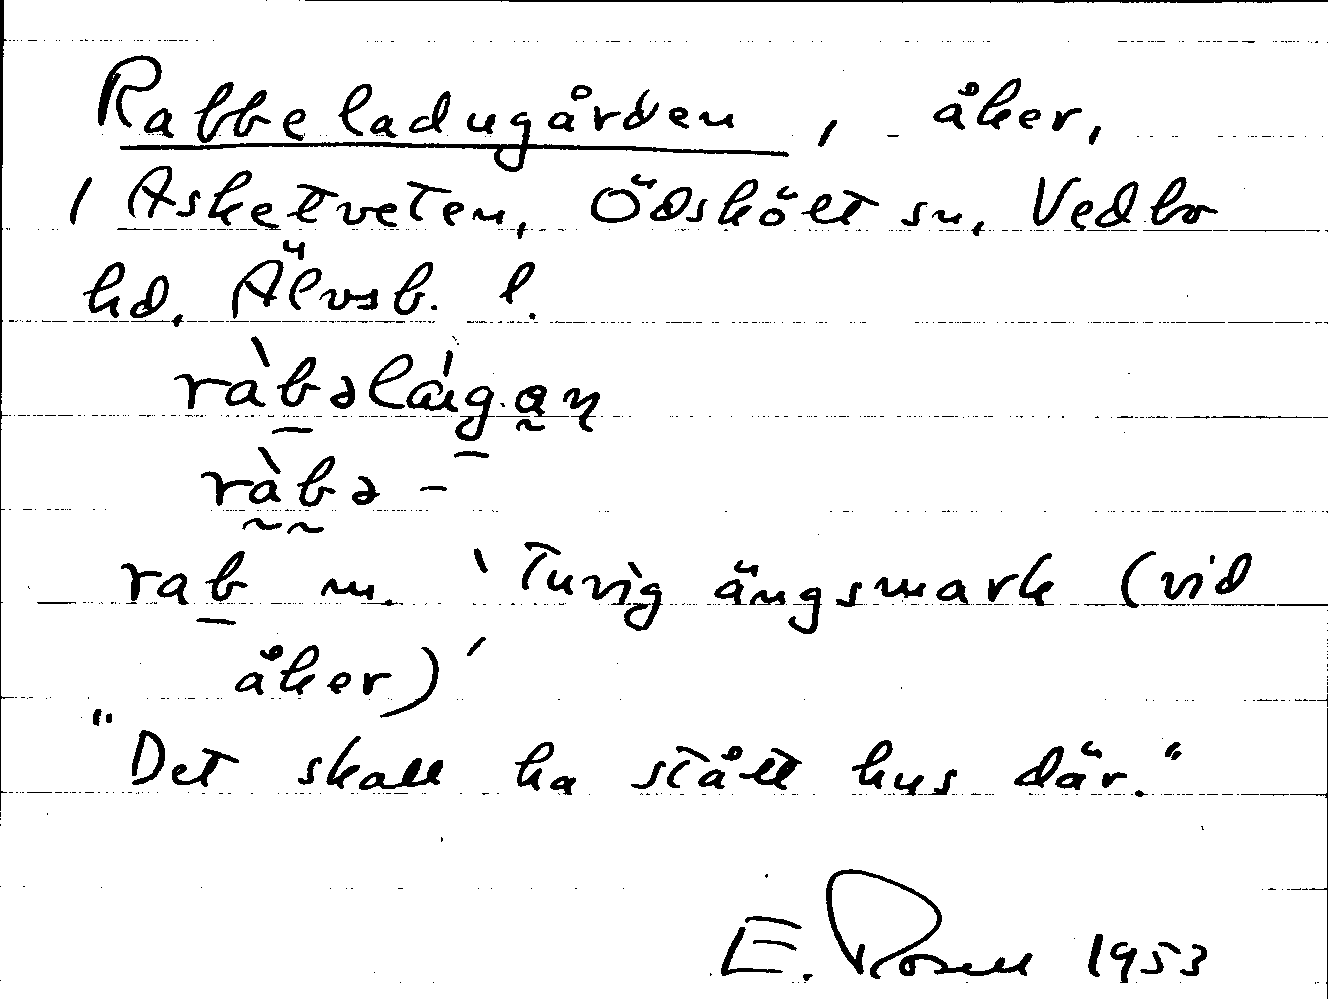 Rabbeladugården, åker,
/ Asketveten, Ödskölt sn, Vedbo
hd. Älvsb. l.
ràbəláigan
ràbə -
rab m. 'Tuvig ängsmark (vid
åker)'
"Det skall ha stått hus där."
E. Rosell 1953